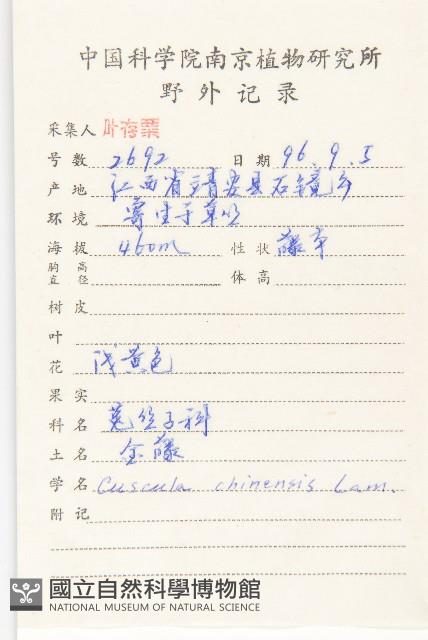 中国科学院南京植物研究所
野外记录
采集人 叶存粟
号数 2692 日期 96.9.5
产地 江西省靖安县石镜乡
环境 寄生于草丛
海拔 460m 性状 藤本
胸高直径 体高
树皮
叶
花 淡黄色
果实
科名 菟丝子科
土名 金藤
学名 Cuscuta chinensis Lam.
附记
國立自然科學博物館
NATIONAL MUSEUM OF NATURAL SCIENCE